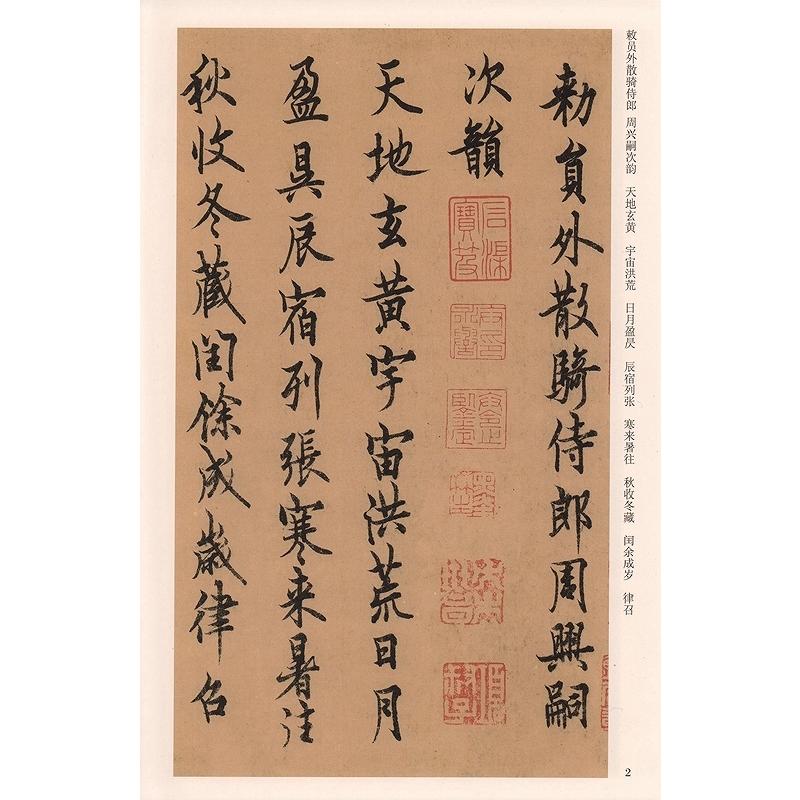 敕员外散骑侍郎 周兴嗣次韵 天地玄黄 宇宙洪荒 日月盈昃 辰宿列张 寒来暑往 秋收冬藏 闰余成岁 律召
勅員外散騎侍郎周興嗣
次韻
天地玄黃宇宙洪荒日月
盈昃辰宿列張寒來暑往
秋收冬藏閏餘成歲律召
2